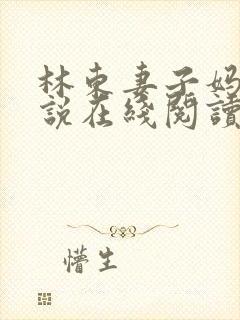 林东妻子妈
說在綫閱讀
懵生